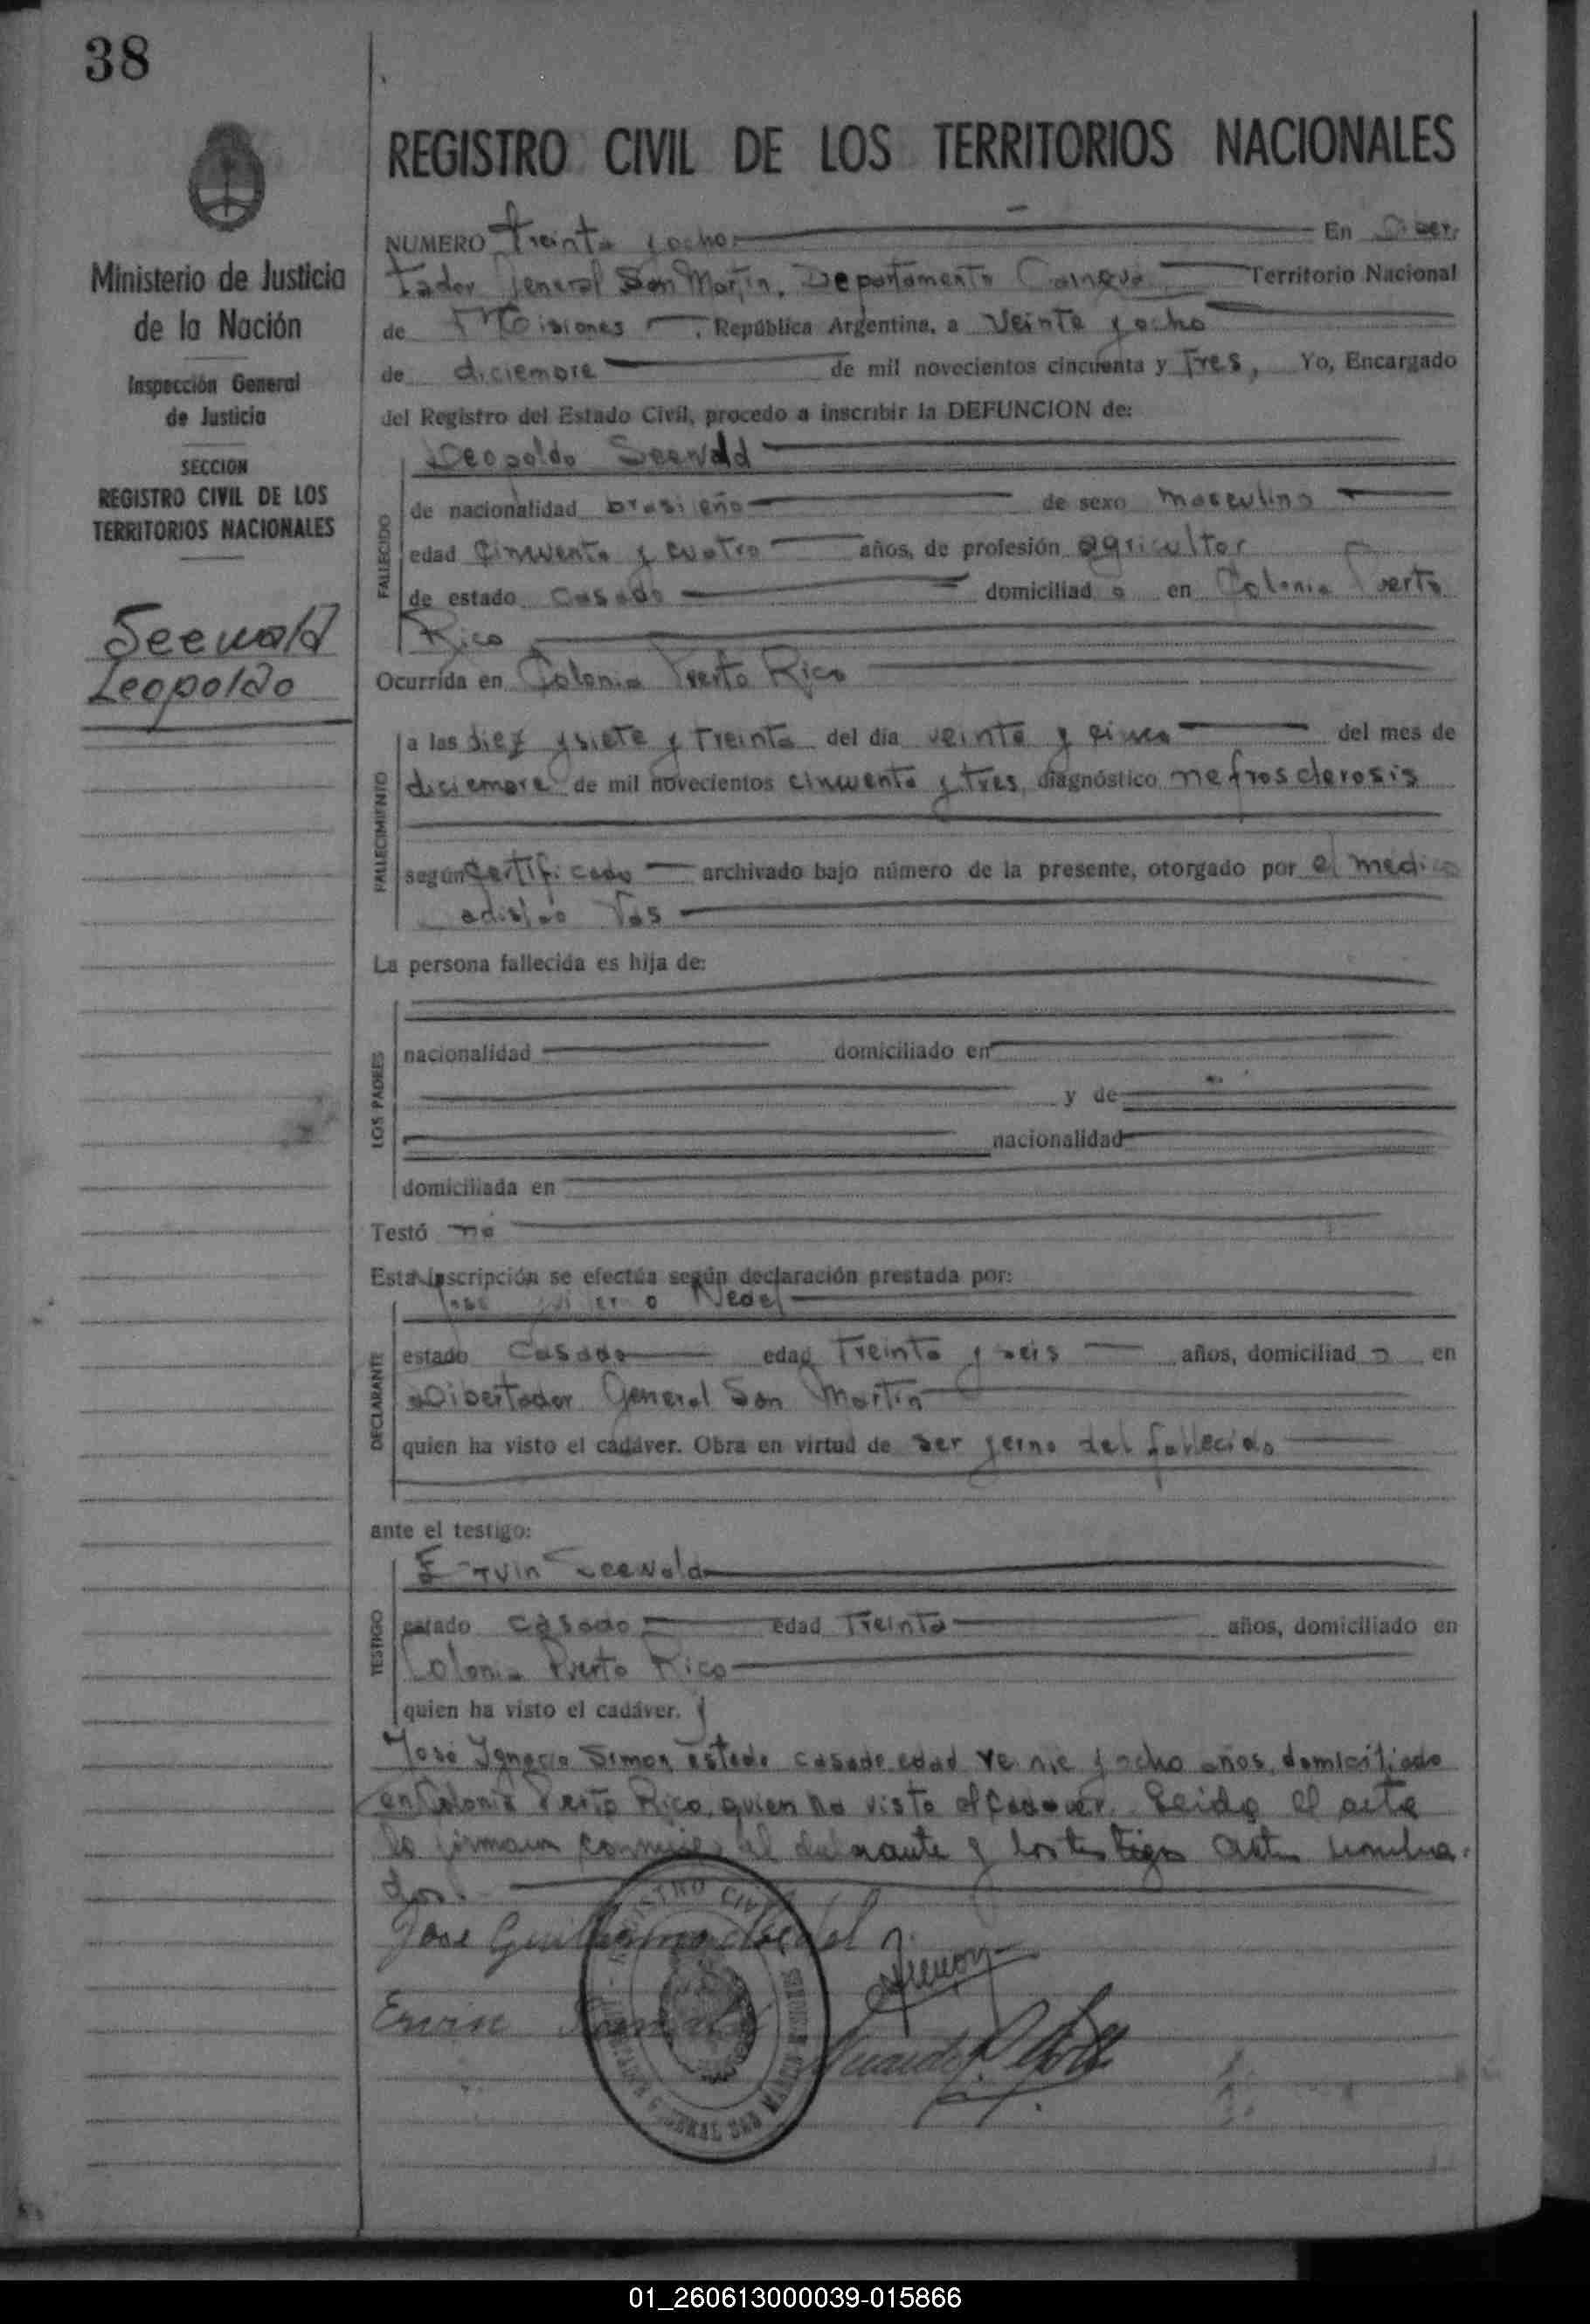 38
Ministerio de Justicia
de la Nación
Inspección General
de Justicia
SECCION
REGISTRO CIVIL DE LOS
TERRITORIOS NACIONALES
Seewald
Leopoldo
REGISTRO CIVIL DE LOS TERRITORIOS NACIONALES
NUMERO treinta y ocho En Liber
tador General San Martin, Departamento Territorio Nacional
de Misiones, República Argentina, a veinte y ocho
de diciembre de mil novecientos cincuenta y tres, Yo, Encargado
del Registro del Estado Civil, procedo a inscribir la DEFUNCION de:
Leopoldo Seewald
FALLECIDO
de nacionalidad brasileño de sexo masculino
edad cincuenta y cuatro años, de profesión agricultor
de estado casado domiciliad o en Colonia Puerto
Rico
Ocurrida en Colonia Puerto Rico
FALLECIMIENTO
a las diez y siete y treinta del día veinte y cinco del mes de
diciembre de mil novecientos cincuenta y tres, diagnóstico nefrosclerosis
según certificado archivado bajo número de la presente, otorgado por el médico
Ladislao Vas
La persona fallecida es hija de:
LOS PADRES
nacionalidad domiciliado en
y de
nacionalidad
domiciliada en
Testó no
Esta inscripción se efectúa según declaración prestada por:
José Guillermo Nedel
DECLARANTE
estado casado edad treinta y seis años, domiciliad o en
Libertador General San Martin
quien ha visto el cadáver. Obra en virtud de ser yerno del fallecido
ante el testigo:
Ervin Seewald
TESTIGO
estado casado edad treinta años, domiciliado en
Colonia Puerto Rico
quien ha visto el cadáver. y
José Ignacio Simon, estado casado edad veinte y ocho años, domiciliado
en Colonia Puerto Rico, quien ha visto el cadaver. Leida el acta
la firman conmigo el declarante y los testigos antes nombra-
dos.
José Guillermo Nedel
Simon
Erwin Seewald
REGISTRO CIVIL
GENERAL SAN MARTIN MISIONES
01_260613000039-015866